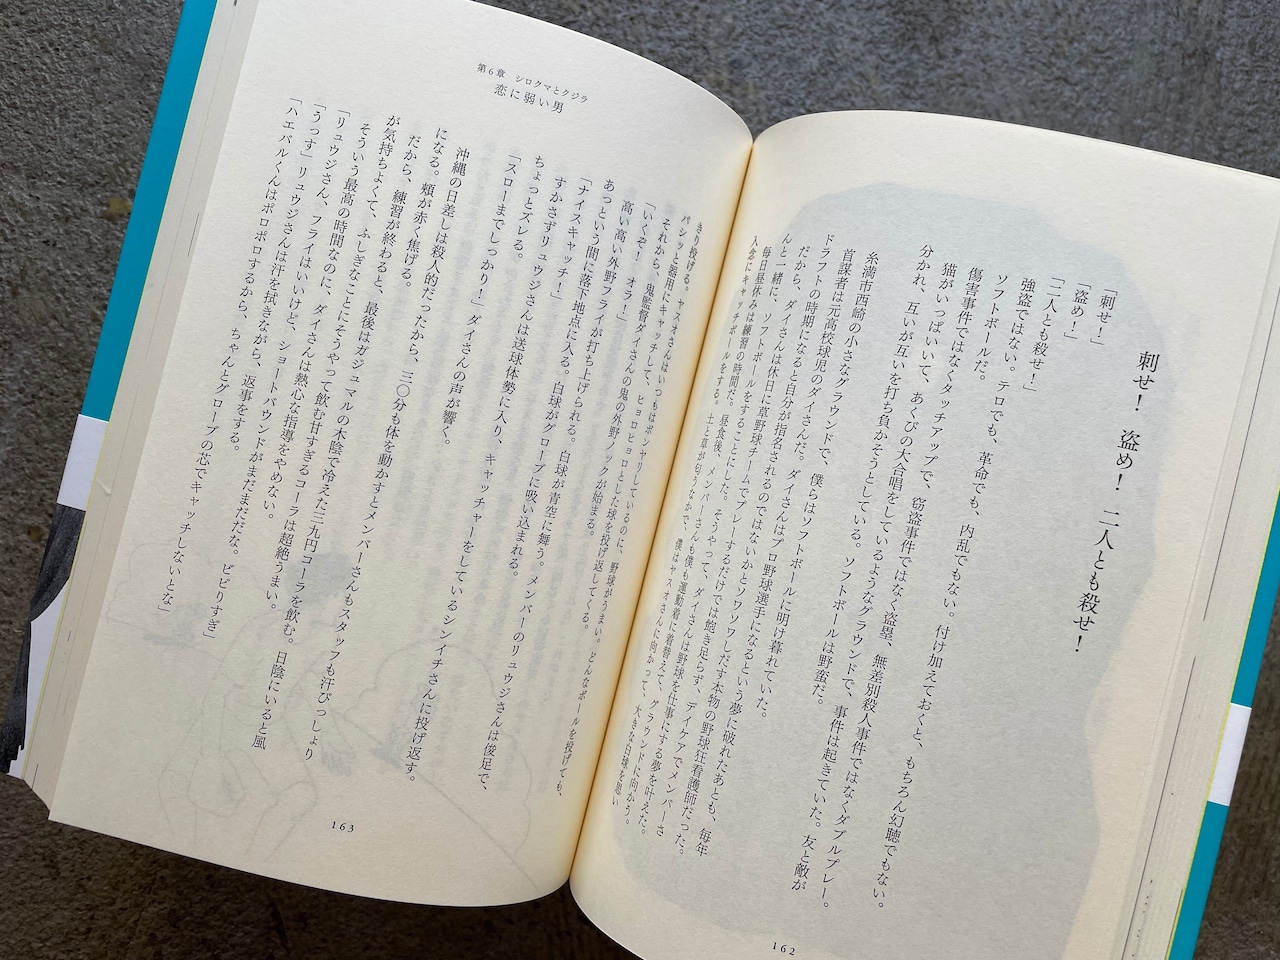 刺せ！ 盗め！ 二人とも殺せ！
「刺せ！」
「盗め！」
「二人とも殺せ！」
強盗ではない。テロでも、革命でも、内乱でもない。付け加えておくと、もちろん幻聴でもない。
ソフトボールだ。
傷害事件ではなくタッチアップで、窃盗事件ではなく盗塁、無差別殺人事件ではなくダブルプレー。
猫がいっぱいいて、あくびの大合唱をしているようなグラウンドで、事件は起きていた。友と敵が
分かれ、互いが互いを打ち負かそうとしている。ソフトボールは野蛮だ。
糸満市西崎の小さなグラウンドで、僕らはソフトボールに明け暮れていた。
首謀者は元高校球児のダイさんだ。ダイさんはプロ野球選手になるという夢に破れたあとも、毎年
ドラフトの時期になると自分が指名されるのではないかとソワソワしだす本物の野球狂看護師だった。
だから、ダイさんは休日に草野球チームでプレーするだけでは飽き足らず、デイケアでメンバーさ
んと一緒に、ソフトボールをすることにした。そうやって、ダイさんは野球を仕事にする夢を叶えた。
毎日昼休みは練習の時間だ。昼食後、メンバーさんも僕も運動着に着替えて、グラウンドに向かう。
入念にキャッチボールをする。土と草が匂うなかで、僕はヤスオさんに向かって、大きな白球を思い
きり投げる。ヤスオさんはいつもはボンヤリしているのに、野球がうまい。どんなボールを投げても、
パシッと器用にキャッチして、ヒョロヒョロとした球を投げ返してくる。
それから、鬼監督ダイさんの鬼の外野ノックが始まる。
「いくぞ！ オラ！」
高い高い外野フライが打ち上げられる。白球が青空に舞う。メンバーのリュウジさんは俊足で、
あっという間に落下地点に入る。白球がグローブに吸い込まれる。
「ナイスキャッチ！」
すかさずリュウジさんは送球体勢に入り、キャッチャーをしているシンイチさんに投げ返す。
ちょっとズレる。
「スローまでしっかり！」ダイさんの声が響く。
沖縄の日差しは殺人的だったから、三〇分も体を動かすとメンバーさんもスタッフも汗びっしょり
になる。頬が赤く焦げる。
だから、練習が終わると、最後はガジュマルの木陰で冷えた三九円コーラを飲む。日陰にいると風
が気持ちよくて、ふしぎなことにそうやって飲む甘すぎるコーラは超絶うまい。
そういう最高の時間なのに、ダイさんは熱心な指導をやめない。
「リュウジさん、フライはいいけど、ショートバウンドがまだまだだな。ビビりすぎ」
「うっす」リュウジさんは汗を拭きながら、返事をする。
「ハエバルくんはポロポロするから、ちゃんとグローブの芯でキャッチしないとな」
162
第6章 シロクマとクジラ
恋に弱い男
163